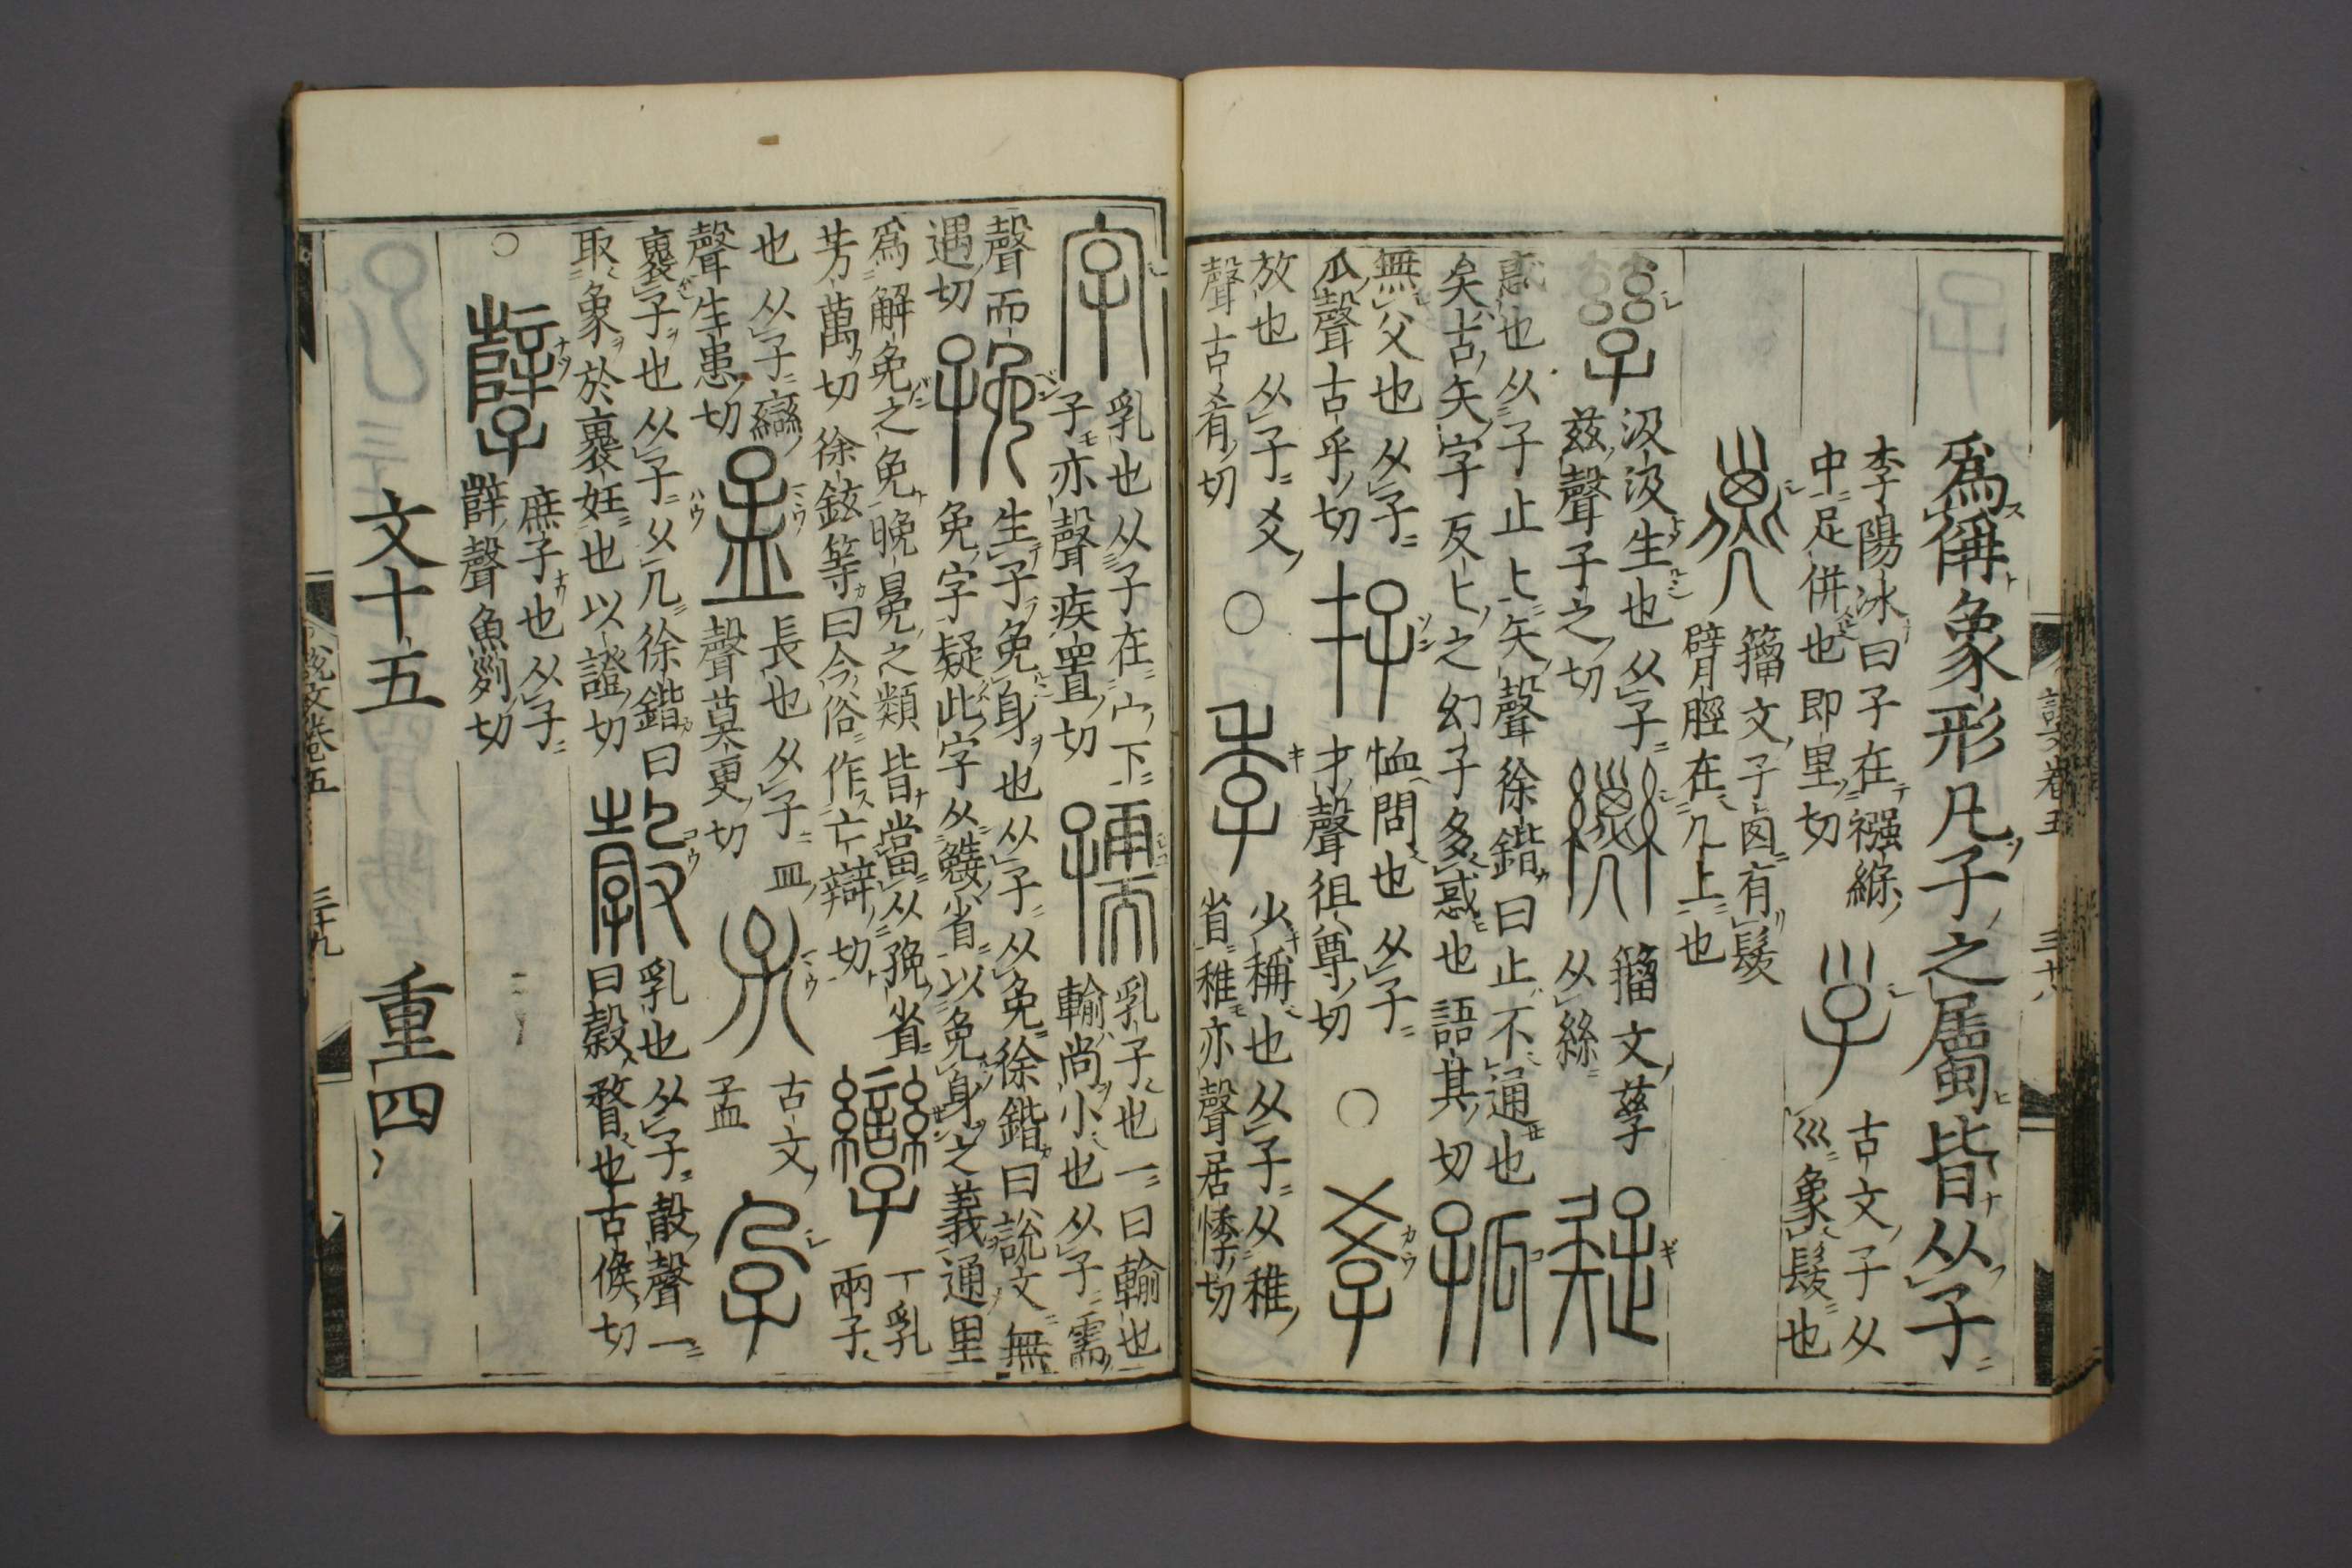 爲偁象形凡子之屬皆从子
李陽冰曰子在襁緥
中足併也即里切
古文子从
巛象髮也
籒文子囟有髮
臂脛在几上也
汲汲生也从子
茲聲子之切
籒文孶
从絲
惑也从子止匕矢聲徐鍇曰止不通也
矣古矢字反匕之幻子多惑也語其切
無父也从子
瓜聲古乎切
恤問也从子
才聲徂尊切
○
放也从子爻
聲古肴切
○
少稱也从子从稚
省稚亦聲居悸切
乳也从子在宀下
子亦聲疾置切
乳子也一曰輸也
輸尚小也从子需
聲而
遇切
生子免身也从子从免徐鍇曰說文無
免字疑此字从㝃省以免身之義通里
爲解免之免晚冕之類皆當从㝃省
芳萬切
徐鉉等曰今俗作亡辯切
一乳
兩子
也从子䜌
聲生患切
長也从子皿
聲莫更切
古文
孟
褢子也从子从几徐鍇曰
取象於褢妊也以證切
乳也从子㱿聲一
曰㝅瞀也古候切
○
庶子也从子
辥聲魚列切
文十五 重四
說文卷五
三十九